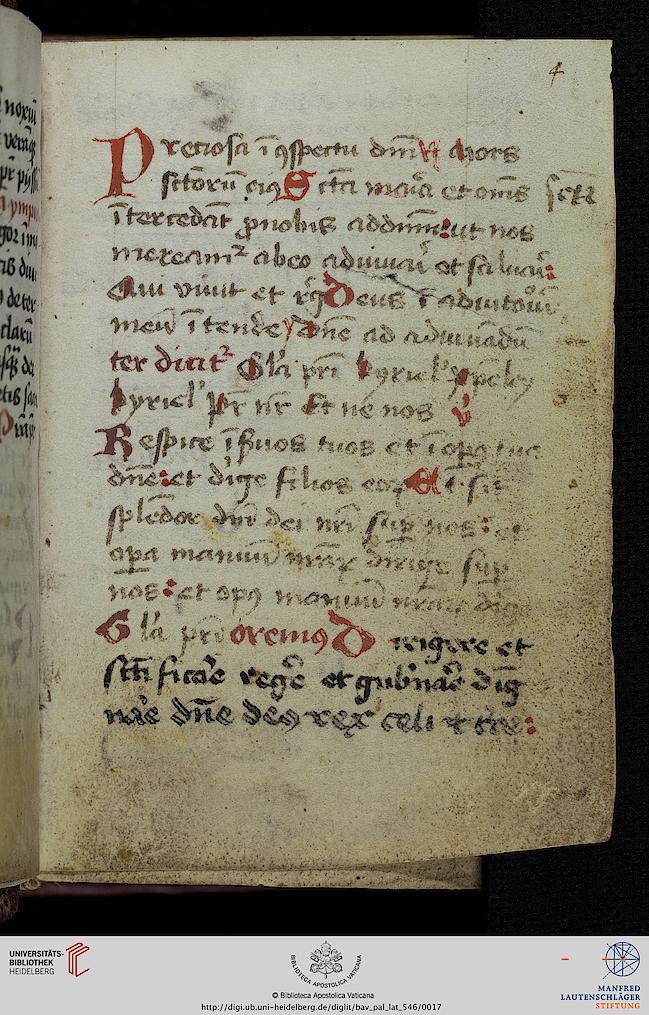 4
Preciosa ī ɔspectu dnī ℟ Mors
sctōrū eiꝰ Sctā maīa et oīnis sctī
īntercedāt ꝓnobis addnm̄: ut nos
mereamꝛ abeo adiuuarī et saluarī:
Qui viuit et rꝫ Deus ī adiutoiū
meū ītende ℣ Dne ad adiuuādū
ter dicitꝛ Glīa pri kyrieł xp̄eley
kyrieł Pr nr Et ne nos ℣
Respice ī ẜuos tuos et ī oꝑa tua
dn̄e: et dīge filios eoꝝ Et sit
splēdor dnī dei nrī suꝑ nos: et
oꝑa manuū nraꝝ dirige suꝑ
nos: et opꝰ manuū nraꝝ dige
Glīa pri oremꝰ Dirigere et
sctīficāe regēe et gub'nāe dig
nāe dn̄e deꝰ rex celi ⁊ tre:
noxiū
UNIVERSITÄTS-
BIBLIOTHEK
HEIDELBERG
BIBLIOTECA APOSTOLICA VATICANA
© Biblioteca Apostolica Vaticana
http://digi.ub.uni-heidelberg.de/diglit/bav_pal_lat_546/0017
MANFRED
LAUTENSCHLÄGER
STIFTUNG